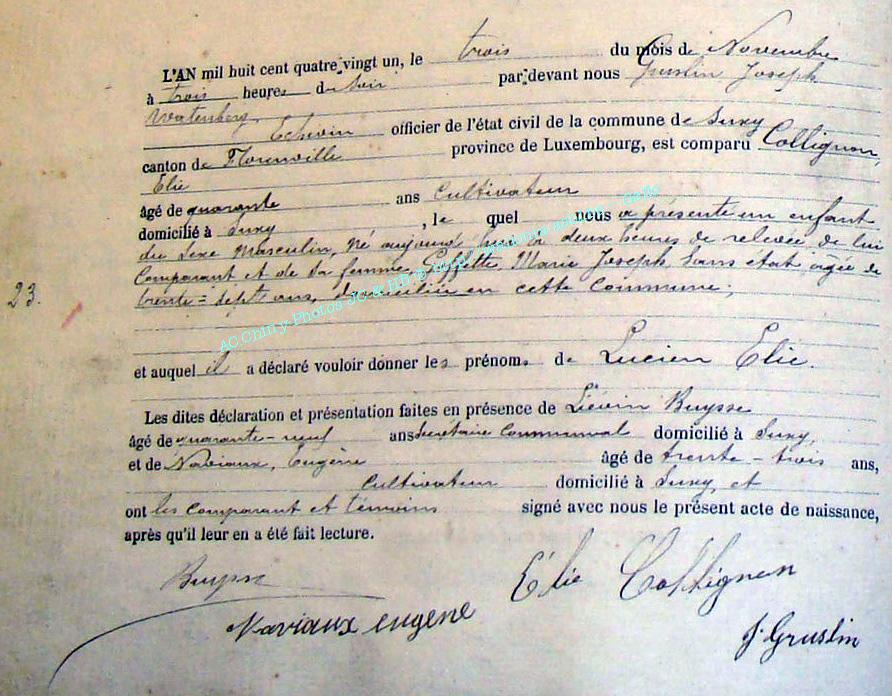 L'AN mil huit cent quatre-vingt un, le trois du mois de Novembre
à trois heures du Soir par-devant nous Gruslin Joseph
Echevin officier de l'état civil de la commune de Suxy
canton de Florenville province de Luxembourg, est comparu Collignon,
Elie
âgé de quarante ans Cultivateur
domicilié à Suxy , le quel nous a présenté un enfant
du Sexe Masculin, né aujourd'hui à deux heures de relevée de lui
Comparant et de Sa femme Marie Joseph, Sans état, âgée de
23.
trente-sept ans, domiciliée en cette Commune;
AC Chiny-Photos
et auquel il a déclaré vouloir donner les prénoms de Lucien Elie.
Les dites déclaration et présentation faites en présence de Liévin Buysse
âgé de quarante-neuf ans Secrétaire Communal domicilié à Suxy,
et de Naviaux, Eugène âgé de trente-trois ans,
Cultivateur domicilié à Suxy, et
ont les comparant et témoins signé avec nous le présent acte de naissance,
après qu'il leur en a été fait lecture.
Buysse
Élie Collignon
Naviaux eugene
J. Gruslin